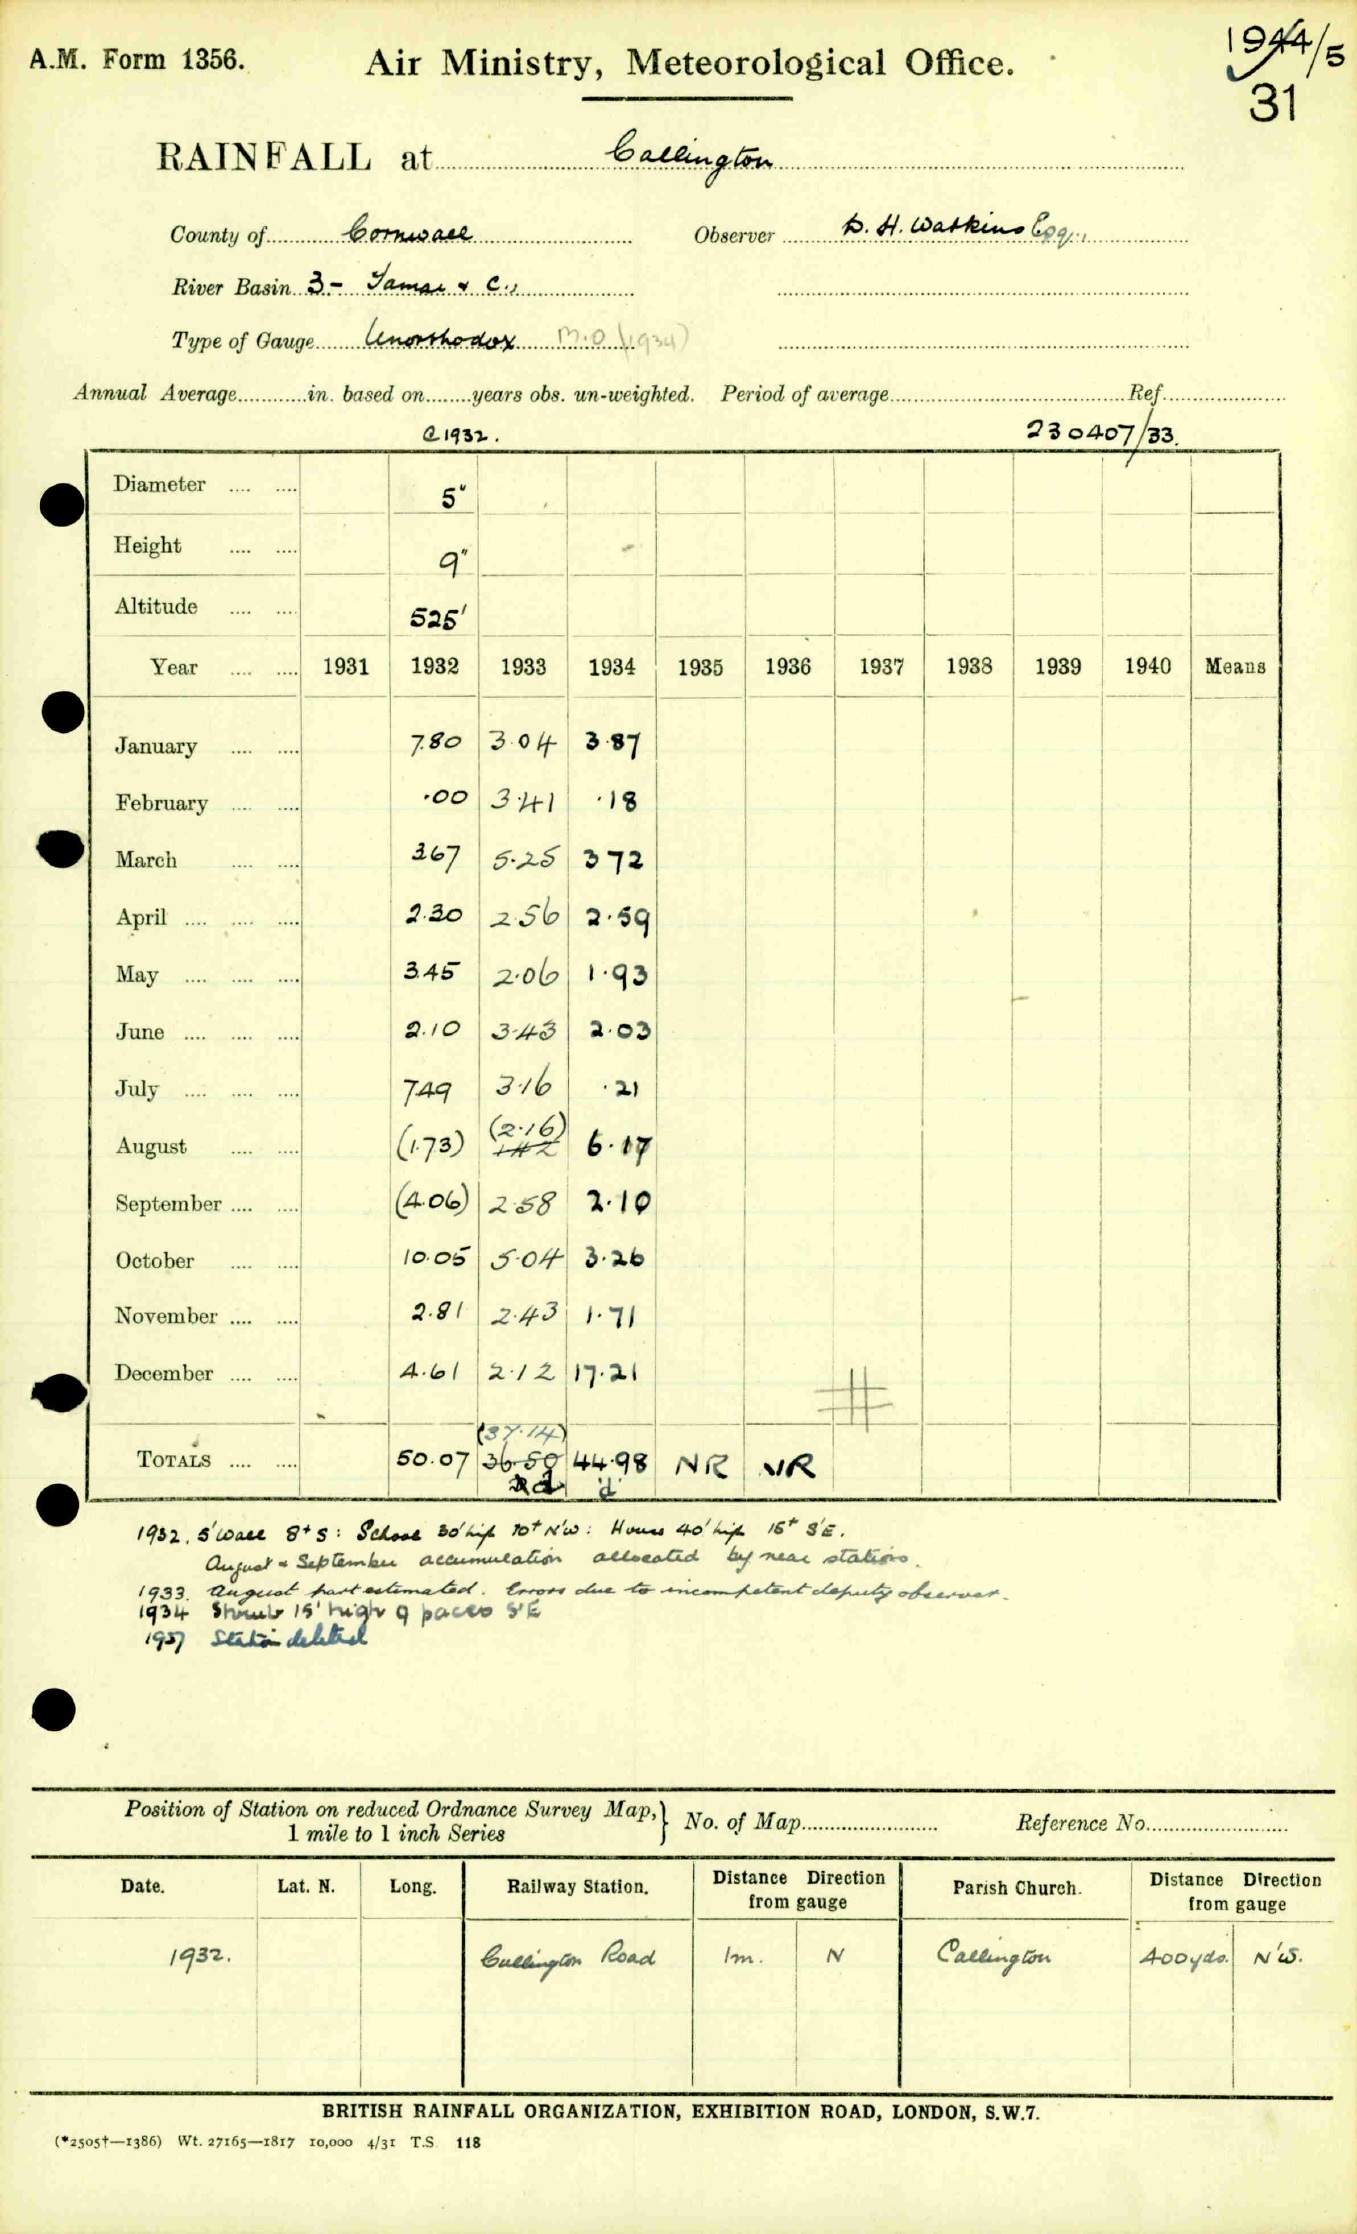 A.M. Form 1356. Air Ministry, Meteorological Office. 1944/5
31
RAINFALL at Callington
County of Cornwall Observer D. H. Watkins Esq.,
River Basin 3 - Tamar & C.,
Type of Gauge Unorthodox M.O (1934)
Annual Average in. based on years obs. un-weighted. Period of average Ref.
C 1932. 230407/33.
Diameter 5"
Height 9"
Altitude 525'
Year 1931 1932 1933 1934 1935 1936 1937 1938 1939 1940 Means
January 7.80 3.04 3.87
February .00 3.41 .18
March 3.67 5.25 3 72
April 2.30 2.56 2.59
May 3.45 2.06 1.93
June 2.10 3.43 2.03
July 7.49 3.16 .21
August (1.73) (2.16) 1.42 6.17
September (4.06) 2.58 2.10
October 10.05 5.04 3.26
November 2.81 2.43 1.71
December 4.61 2.12 17.21
(37.14)
TOTALS 50.07 36.50 44.98 NR NR
d
1932. 5' Wall 8+ S: School 30' high 70+ N'W: House 40' high 15+ S'E.
August & September accumulation allocated by near stations.
1933. August part estimated. Errors due to incompetent deputy observer.
1934 Shrub 15' high 9 paces S'E
1937 Station deleted
Position of Station on reduced Ordnance Survey Map,} No. of Map Reference No.
1 mile to 1 inch Series
Date. Lat. N. Long. Railway Station. Distance Direction from gauge Parish Church. Distance Direction from gauge
1932. Callington Road 1m. N Callington 400yds. N'W.
BRITISH RAINFALL ORGANIZATION, EXHIBITION ROAD, LONDON, S.W.7.
(*2505†—1386) Wt. 27165—1817 10,000 4/31 T.S. 118